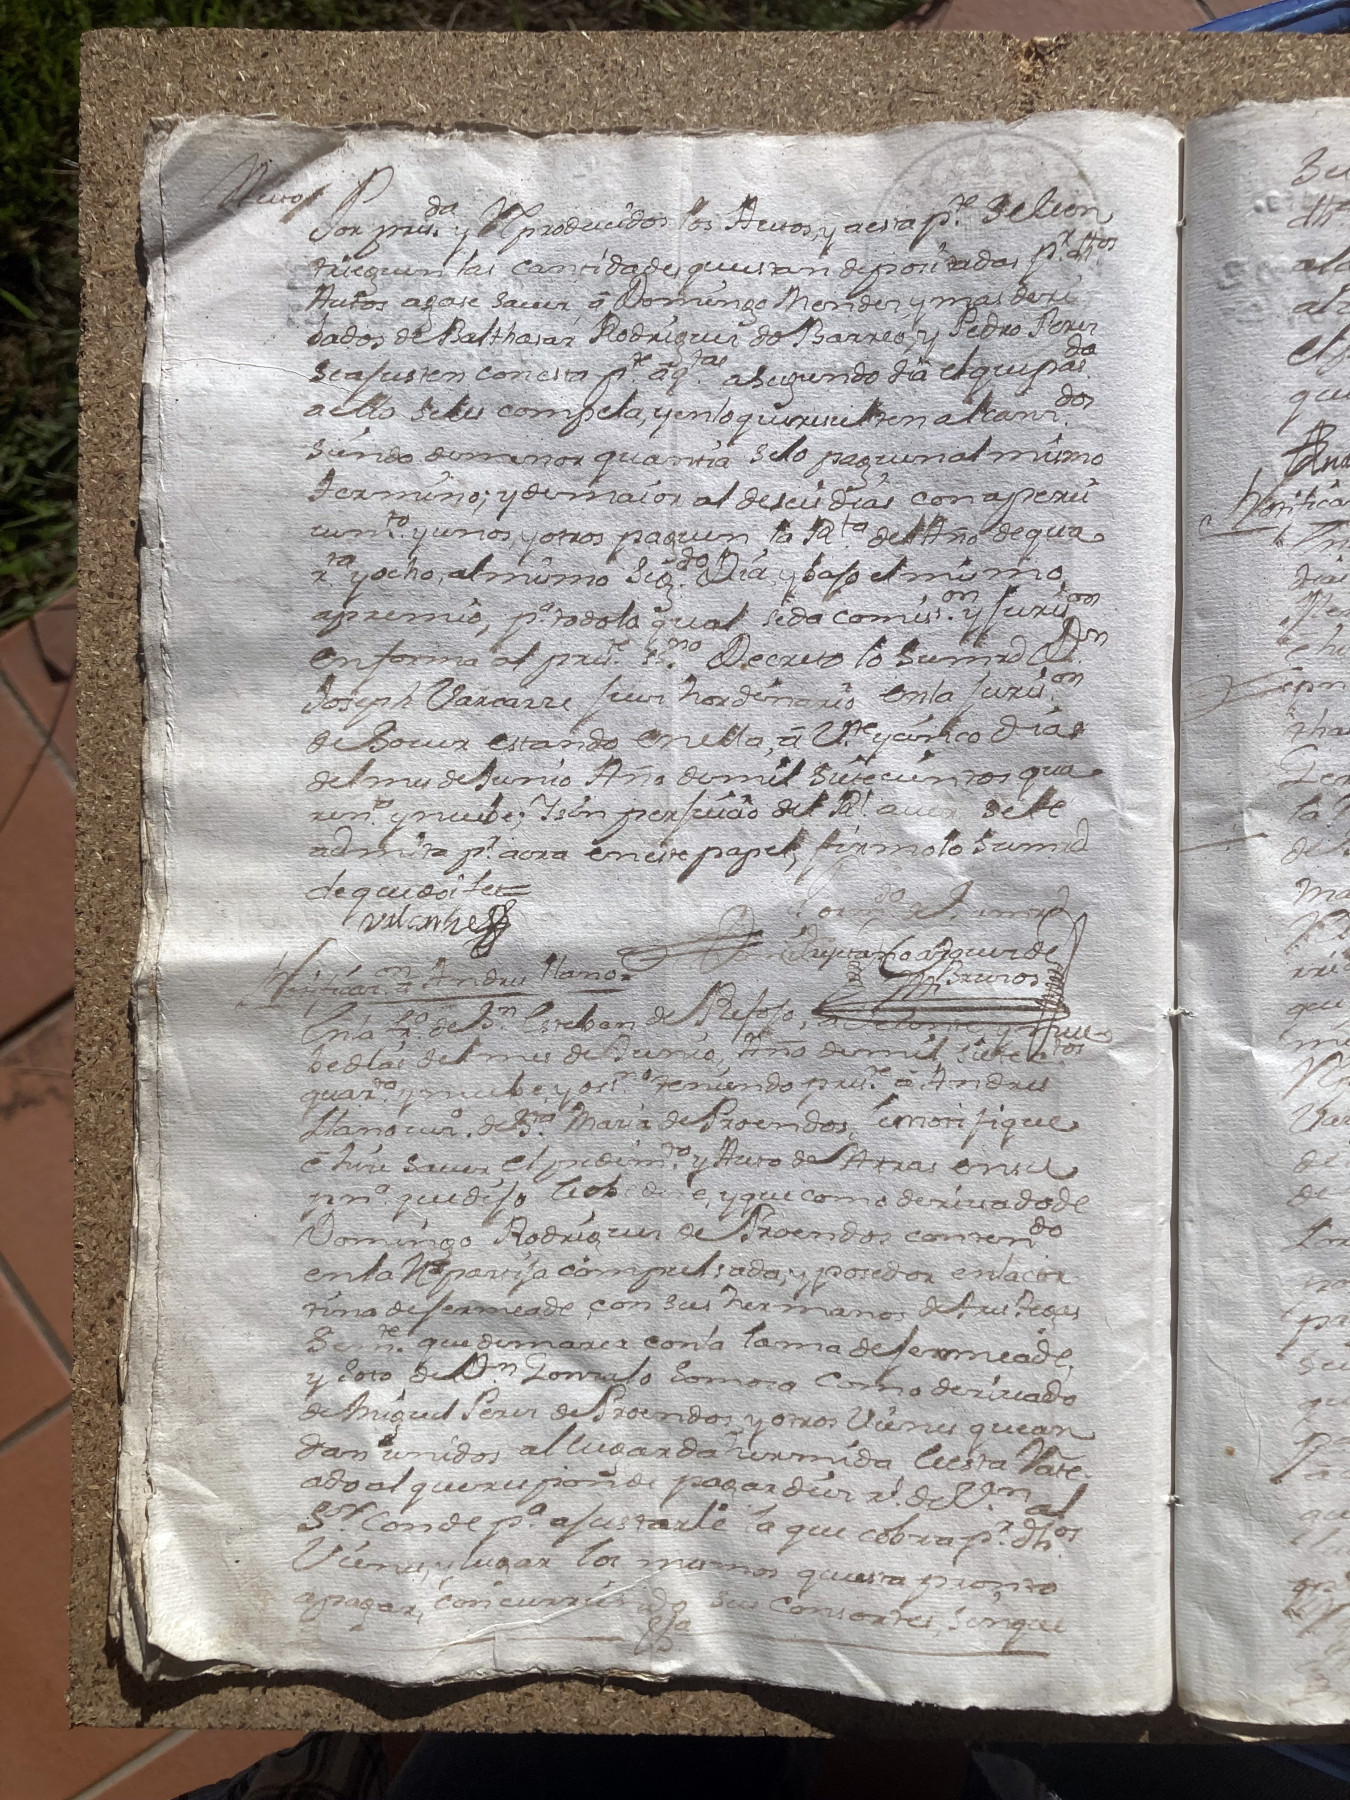 Auto
Por pres.da y producidos los Autos, y a esta p.te se le en
triequen las cantidades questan depositadas p.r dhos
Autos agase saver, a Domingo Mendez, y mas deri
bados de Balthasar Rodriguez do Barreo, y Pedro Perez
se ajusten con esta p.te a q.tas a segundo dia el qui pas.do
a ello se les compela, y en lo que resulten alcanz.dos
siendo de menor quantia se lo paguen al mismo
termino; y de maior al de seis dias con aperci
vim.to y unos, y otros paguen la R.ta del Año de qua
r.ta y ocho, al mismo seg.do Dia, y bajo el mismo
apremio, p.a todo lo qual se da comis.on y juris.on
en forma al pres.te ss.no Decreto lo Sumrd D.n
Joseph Varcarze Juez hordinario en la juris.on
de Bover estando en ella, a V.te y cinco Dias
del mes de Junio Año de mil sietecientos qua
ren.ta y nuebe; y sin perjuicio del R.l aver se le
admita p.r aora en este papel, firmolo Sumrd
de que doi fee=
Valcarze
Cayetano Vazquez de
Notificaz.on a Andres Llano=
En la fra de S.n Esteban de Refojo, a veinte y nue
be dias del mes de Junio, Año de mil siete z.tos
quar.ta y nuebe, yo ss.no teniendo pres.te a Andres
Llano vez.o de S.ta Maria de Proendos, le notifique
e hize saver el pedim.to y Auto de Atras en su
prn.a que dijo le obedeze, y que como derivado de
Domingo Rodriguez de Proendos conten.do
en la R.ta partija compulsada, y posedor en la cor
tina de fermeade, con sus hermanos de tres tegas
Sem.te que demarca con la lama de fermeade,
y soto de D.n Gonzalo Somoza como derivado
de Miguel Perez de Proendos, y otros Vienes que an
dan unidos al lugar da hermida
ado al que en pension de pagar diez r.s de V.on al
S.or Conde p.a ajustarle la que cobra p.r dhos
Vienes, y lugar los mismos questa pronto
a pagar, concurriendo sus consortes, sin que